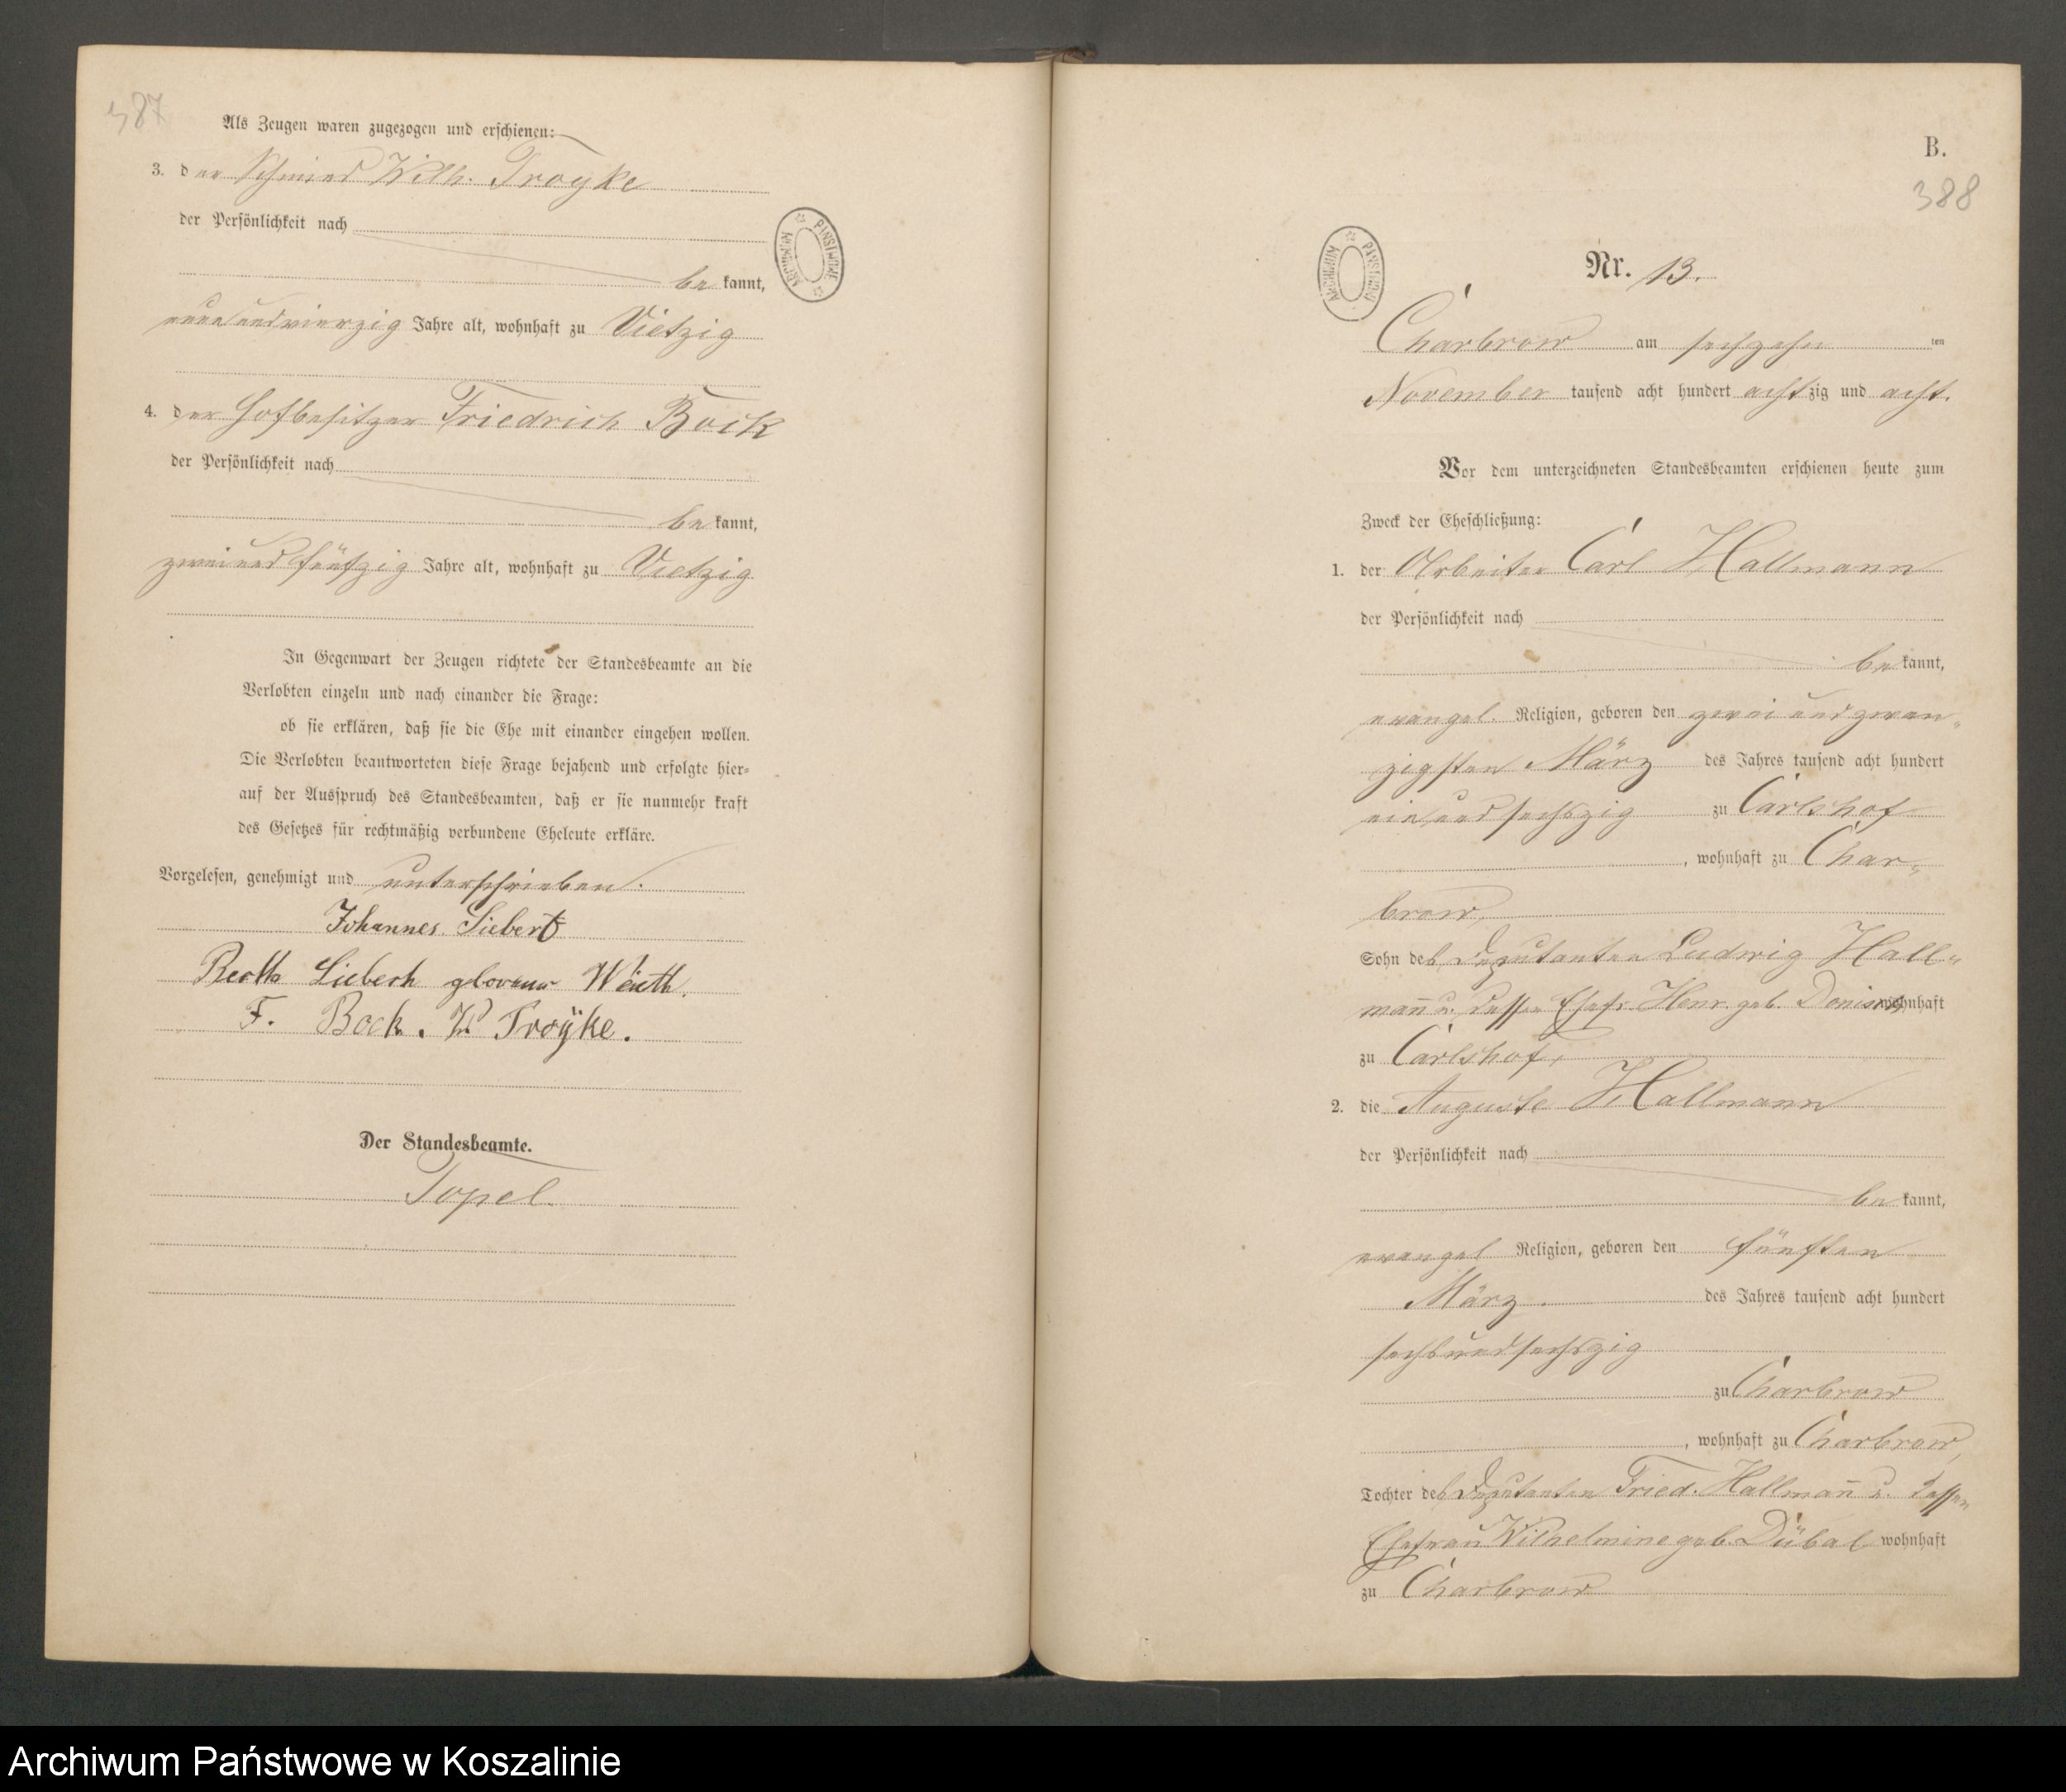 387
Als Zeugen waren zugezogen und erschienen:
3. der Schmied Wilh. Troyke
der Persönlichkeit nach
be kannt,
neunundvierzig Jahre alt, wohnhaft zu Vietzig
4. der Hofbesitzer Friedrich Bock
der Persönlichkeit nach
be kannt,
zweiundfünfzig Jahre alt, wohnhaft zu Vietzig
In Gegenwart der Zeugen richtete der Standesbeamte an die
Verlobten einzeln und nach einander die Frage:
ob sie erklären, daß sie die Ehe mit einander eingehen wollen.
Die Verlobten beantworteten diese Frage bejahend und erfolgte hier-
auf der Ausspruch des Standesbeamten, daß er sie nunmehr kraft
des Gesetzes für rechtmäßig verbundene Eheleute erkläre.
Vorgelesen, genehmigt und unterschrieben.
Johannes Siebert
F. Bock. W Troÿke.
Der Standesbeamte.
Topel.
ARCHIWUM PAŃSTWOWE
B.
388
ARCHIWUM PAŃSTWOWE
Nr. 13.
Charbrow am sechzehn ten
November tausend acht hundert achtzig und acht.
Vor dem unterzeichneten Standesbeamten erschienen heute zum
Zweck der Eheschließung:
1. der Arbeiter Carl Hallmann
der Persönlichkeit nach
be kannt,
evangel. Religion, geboren den zwei und zwan-
zigsten März des Jahres tausend acht hundert
einundsechszig zu Carlshof
, wohnhaft zu Char-
brow,
Sohn des Deputanten Ludwig Hall-
mann u. dessen Ehefr. Henr. geb. wohnhaft
zu Carlshof,
2. die Auguste Hallmann
der Persönlichkeit nach
be kannt,
evangel Religion, geboren den fünften
März. des Jahres tausend acht hundert
sechsundsechszig
zu Charbrow
, wohnhaft zu Charbrow,
Tochter des Deputanten Fried. Hallmann u. dessen
Ehefrau Wilhelmine geb. Dübal wohnhaft
zu Charbrow
Archiwum Państwowe w Koszalinie